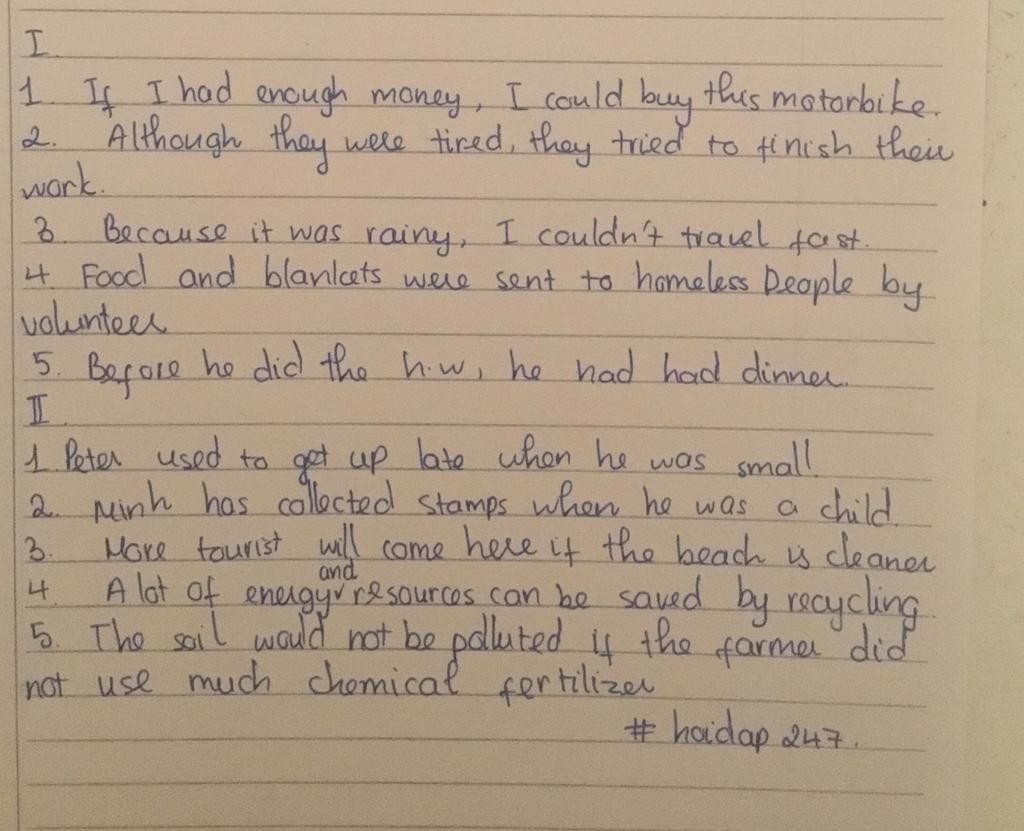 I
1. If I had enough money, I could buy this motorbike.
2. Although they were tired, they tried to finish their
work.
3. Because it was rainy, I couldn't travel fast.
4. Food and blankets were sent to homeless people by
volunteer
5. Before he did the h.w, he had had dinner.
II
1 Peter used to get up late when he was small.
2. Minh has collected stamps when he was a child.
3. More tourist will come here if the beach is cleaner
4. A lot of energy and resources can be saved by recycling.
5. The soil would not be polluted if the farmer did
not use much chemical fertilizer
# hoidap 247.